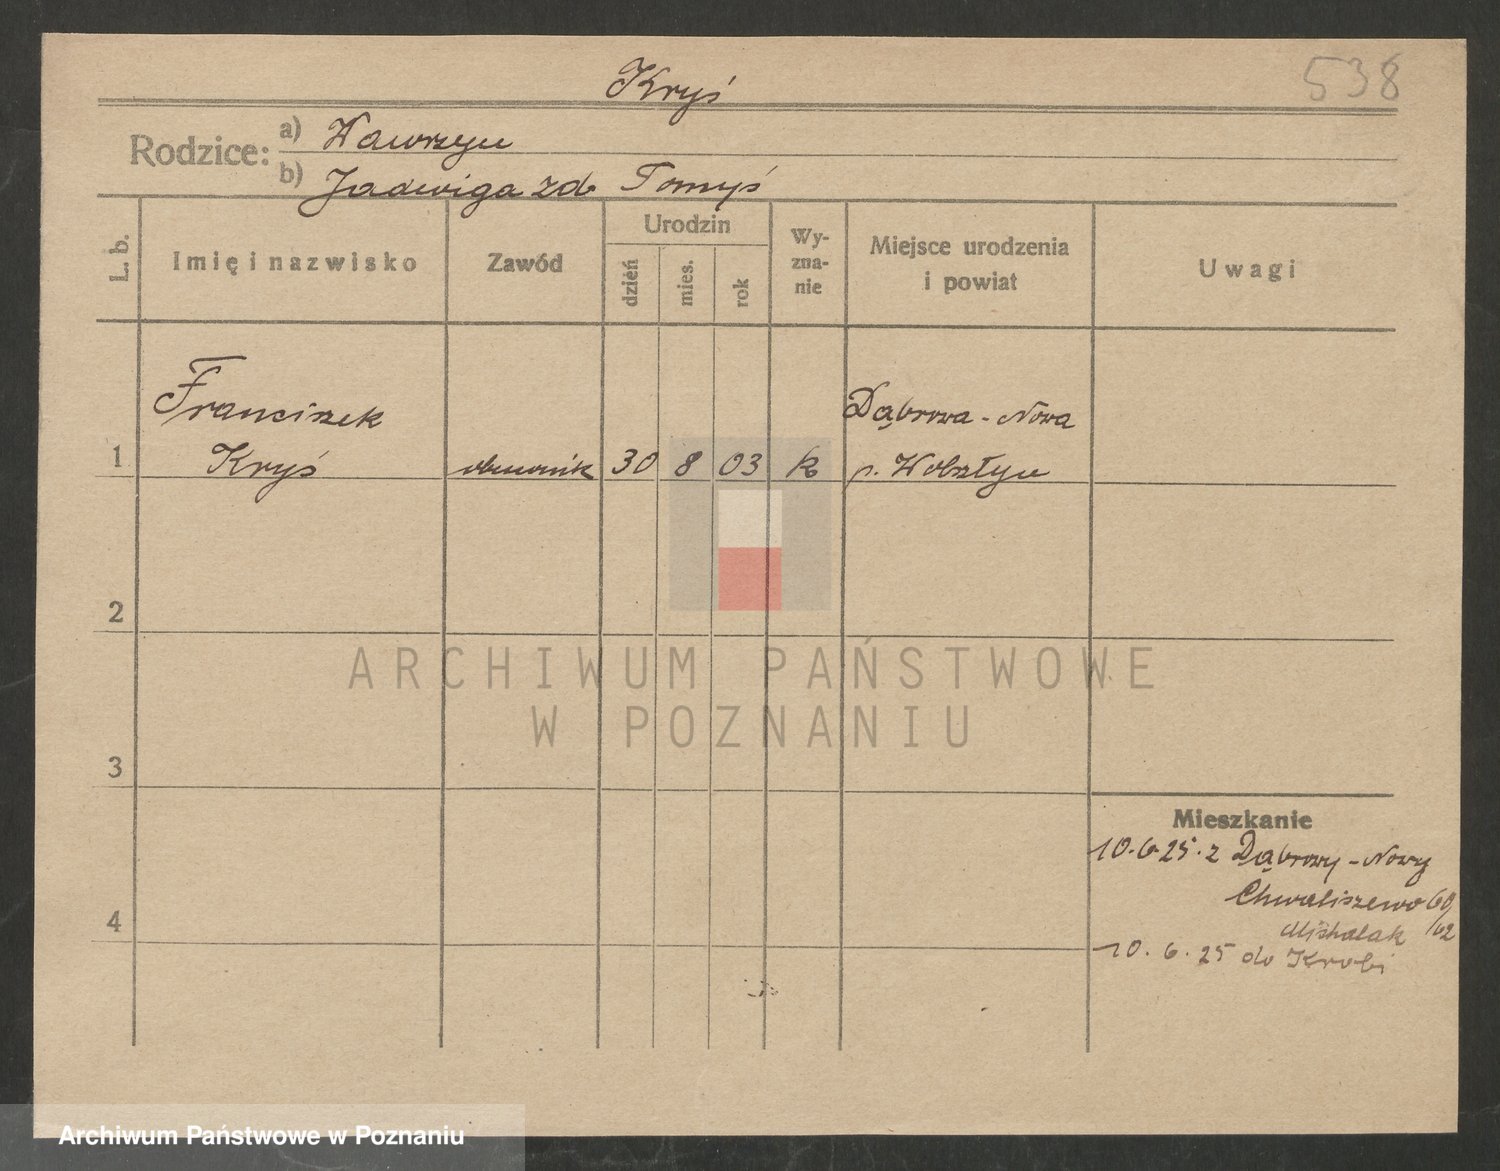 Kryś
538
Rodzice: a) Wawrzyn
b) Jadwiga zd. Tomyś
L. b.
Imię i nazwisko
Zawód
Urodzin
dzień
mies.
rok
Wy-
zna-
nie
Miejsce urodzenia
i powiat
Uwagi
Franciszek
Dąbrowa - Nowa
1 Kryś 30 8 03 k p. Wolsztyn
2
ARCHIWUM PAŃSTWOWE
W POZNANIU
3
Mieszkanie
10.6.25. z Dąbrowy - Nowy
Chwaliszewo 60/62
Michalak
4
10. 6. 25 do Krobi
Archiwum Państwowe w Poznaniu